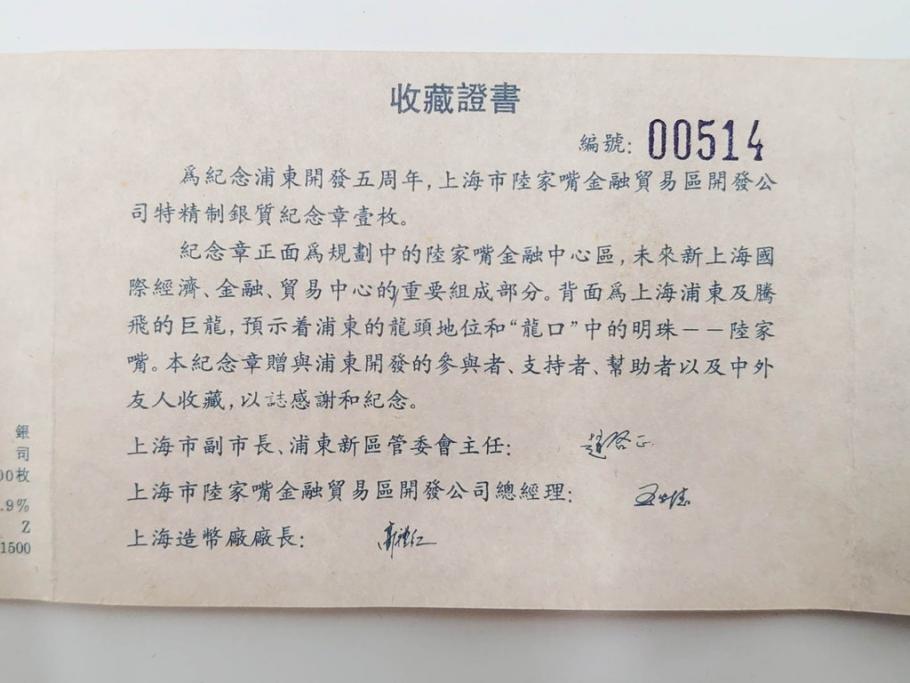 收藏證書
編號: 00514
爲紀念浦東開發五周年,上海市陸家嘴金融貿易區開發公
司特精制銀質紀念章壹枚。
紀念章正面爲規劃中的陸家嘴金融中心區,未來新上海國
際經濟、金融、貿易中心的重要組成部分。背面爲上海浦東及騰
飛的巨龍,預示着浦東的龍頭地位和“龍口”中的明珠——陸家
嘴。本紀念章贈與浦東開發的參與者、支持者、幫助者以及中外
友人收藏,以誌感謝和紀念。
上海市副市長、浦東新區管委會主任: 趙啓正
上海市陸家嘴金融貿易區開發公司總經理:
上海造幣廠廠長:
銀
司
00枚
.9%
Z
1500